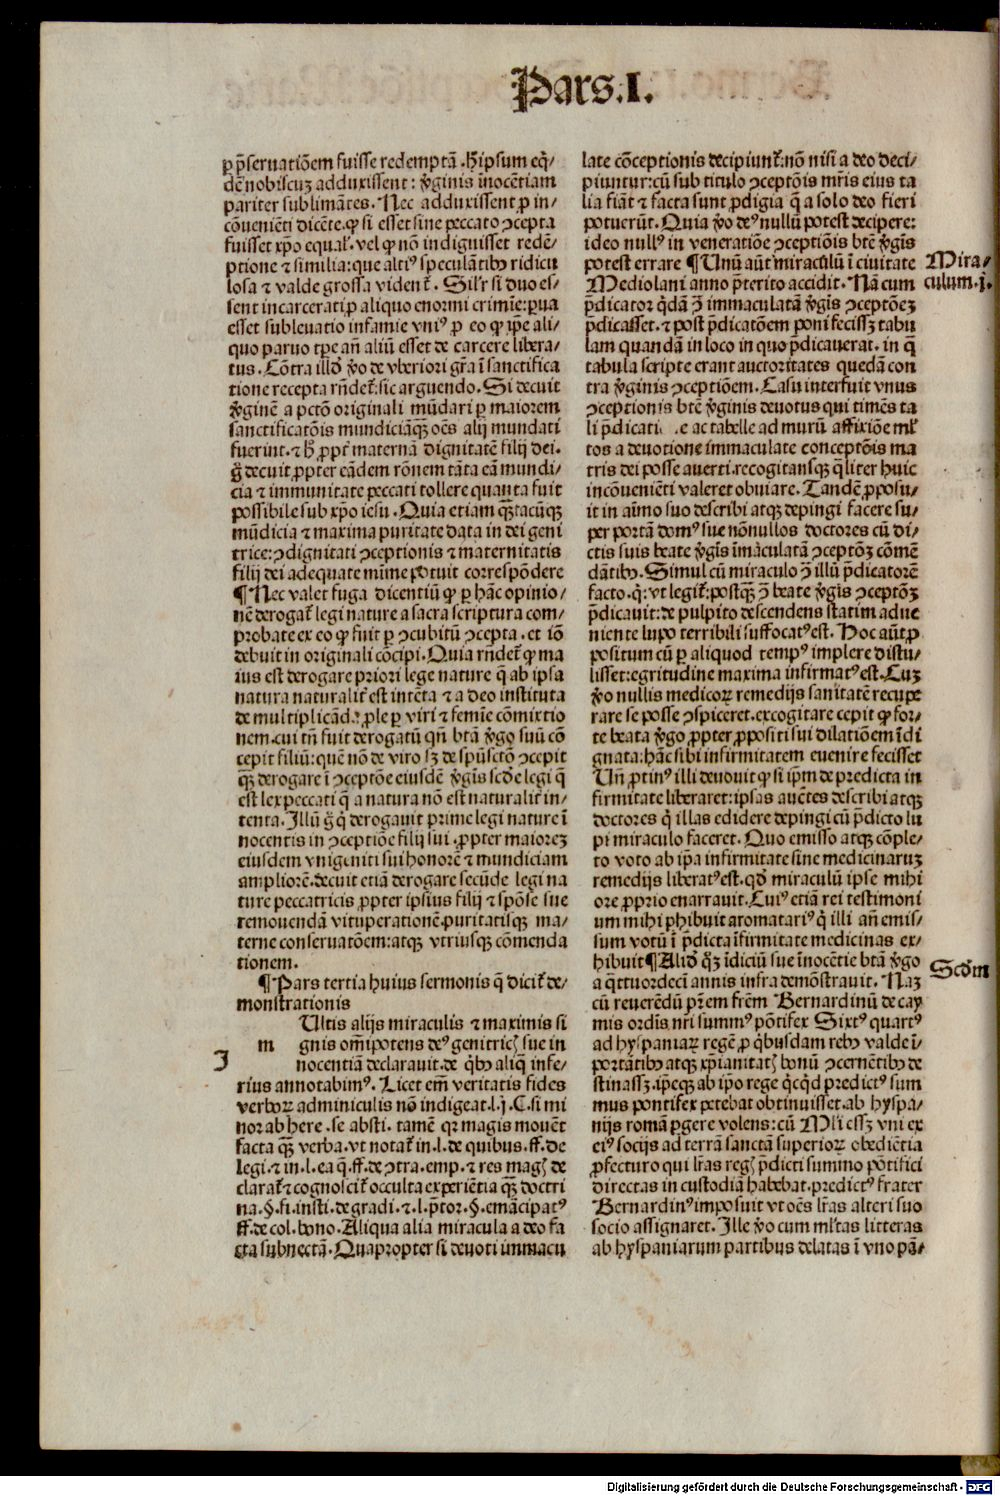 Pars.I.
ꝑ p̄seruatiōem fuisse redemptā. H̄ ipsum eq̄/
dē nobiscuꝫ adduxissent: v̄ginis īnocētiam
pariter sublimātes. Nec adduxissent ꝓ in/
cōueniēti dicēte. ꝙ si esset sine peccato ꝯcepta
fuisset xp̄o equal'. vel ꝙ nō indiguisset redē/
ptione ⁊ similia: que altiꝰ speculātibꝫ ridicu
losa ⁊ valde grossa vident̄. Sil'r si duo es/
sent incarcerati ꝑ aliquo enormi crimīe: ꝓua
esset subleuatio infamie vniꝰ ꝓ eo ꝙ ip̄e ali/
quo paruo tp̄e añ aliū esset de carcere libera/
tus. Cōtra illd̄ v̄o de vberiori gr̄a ī sanctifica
tione recepta rn̄det̄: sic arguendo. Si decuit
v̄ginē a pctō originali mūdari ꝑ maiorem
sanctificatōis mundiciāqꝫ oēs alij mundati
fuerint. ⁊ h̄ ꝓpt̄ maternā dignitatē filij dei.
g̊ decuit ꝓpter eādem rōnem tāta eā mundi/
cia ⁊ immunitate peccati tollere quanta fuit
possibile sub xp̄o iesu. Quia etiam qꝫtacūqꝫ
mūdicia ⁊ maxima puritate data in dei geni
trice: ꝯdignitati ꝯceptionis ⁊ maternitatis
filij dei adequate mīme potuit correspōdere
¶ Nec valet fuga dicentiū ꝙ ꝑ hāc opinio/
nē derogat̄ legi nature a sacra scriptura com/
probate ex eo ꝙ fuit ꝑ ꝯcubitū ꝯcepta. et iō
debuit in originali cōcipi. Quia rn̄det̄ ꝙ ma
ius est derogare priori lege nature q̄ ab ipsa
natura naturalit̄ est intēta ⁊ a deo instituta
de multiplicāda ꝓle ꝑ viri ⁊ femīe cōmixtio
nem. cui tn̄ fuit derogatū qn̄ btā v̄go suū cō
cepit filiū: quē nō de viro sꝫ de spūsctō ꝯcepit
qꝫ derogare ī ꝯceptōe eiusdē v̄gīs scd̄e legi q̄
est lex peccati q̄ a natura nō est naturalit̄ in/
tenta. Illū g̊ q̄ derogauit prime legi nature ī
nocentis in ꝯceptiōe filij sui ꝓpter maioreꝫ
eiusdem vnigeniti sui honorē ⁊ mundiciam
ampliorē. decuit etiā derogare secūde legi na
ture peccatricis ꝓpter ipsius filij ⁊ spōse sue
remouendā vituperationē. puritatisqꝫ ma/
terne conseruatōem: atqꝫ vtriusqꝫ cōmenda
tionem.
¶ Pars tertia huius sermonis q̄ dicit̄ de/
monstrationis
Ultis alijs miraculis ⁊ maximis si
m gnis om̄ipotens deꝰ genitricꝭ sue in
I nocentiā declarauit. de qb̄ꝫ aliq̄ infe/
rius annotabimꝰ. Licet em̄ veritatis fides
verboꝝ adminiculis nō indigeat. l. j. C. si mi
nor ab here. se absti. tamē qꝛ magis mouēt
facta qꝫ verba. vt notat̄ in. l. de quibus. ff. de
legi. ⁊ in. l. ea q̄. ff. de ꝯtra. emp. ⁊ res magꝭ de
clarat̄ ⁊ cognoscit̄ occulta experiētia qꝫ doctri
na. §. fi. insti. de gradi. ⁊. l. p̄tor. §. emācipatꝰ
ff. de col. bono. Aliqua alia miracula a deo fa
cta subnectā. Quapropter si deuoti immacu
late cōceptionis decipiunt̄: nō nisi a deo deci/
piuntur: cū sub titulo ꝯceptōis mr̄is eius ta
lia fiāt ⁊ facta sunt ꝓdigia q̄ a solo deo fieri
potuerūt. Quia v̄o deꝰ nullū potest decipere:
ideo nullꝰ in veneratiōe ꝯceptiōis btē v̄gīs
potest errare ¶ Unū aūt miraculū ī ciuitate
Mediolani anno p̄terito accidit. Nā cum
p̄dicator q̄dā ꝯ̄ immaculatā v̄gīs ꝯceptōeꝫ
p̄dicasset. ⁊ post p̄dicatōem poni fecissꝫ tabu
lam quandā in loco in quo p̄dicauerat. in q̄
tabula scripte erant auctoritates quedā con
tra v̄ginis ꝯceptiōem. Casu interfuit vnus
ꝯceptionis btē v̄ginis deuotus qui timēs ta
li p̄dicati e ac tabelle ad murū affixiōe ml'
tos a deuotione immaculate conceptōis ma
tris dei posse auerti. recogitansqꝫ q̄liter huic
incōueniēti valeret obuiare. Tandē ꝓposu/
it in aīmo suo describi atqꝫ depingi facere su/
per portā domꝰ sue nōnullos doctores cū di/
ctis suis beate v̄gīs īmaculatā ꝯceptōꝫ cōmē
dātibꝫ. Simul cū miraculo ꝯ̄ illū p̄dicatorē
facto. q̄: vt legit̄: postqꝫ ꝯ̄ beate v̄gīs ꝯceptōꝫ
p̄dicauit: de pulpito descendens statim adue
niente lupo terribili suffocatꝰ est. Hoc aūt ꝓ
positum cū ꝑ aliquod tempꝰ implere distu/
lisset: egritudine maxima infirmatꝰ est. Cuꝫ
v̄o nullis medicoꝝ remedijs sanitatē recupe
rare se posse ꝯspiceret. excogitare cepit ꝙ for/
te beata v̄go ꝓpter ꝓpositi sui dilatiōem īdi
gnata: hāc sibi infirmitatem euenire fecisset
Un̄ ꝓtinꝰ illi deuouit ꝙ si ip̄m de predicta in
firmitate liberaret: ipsas auc̄tes describi atqꝫ
doctores q̄ illas edidere depingi cū p̄dicto lu
pi miraculo faceret. Quo emisso atqꝫ cōple/
to voto ab ip̄a infirmitate sine medicinaruꝫ
remedijs liberatꝰ est. qd̄ miraculū ipse mihi
ore ꝓprio enarrauit. Cuiꝰ etiā rei testimoni
um mihi ꝑhibuit aromatariꝰ q̄ illi añ emis/
sum votū ī p̄dicta īfirmitate medicinas ex/
hibuit ¶ Aliđ qꝫ īdiciū sue īnocētie btā v̄go
a q̄ttuordecī annis infra demōstrauit. Naꝫ
cū reuerēdū pr̄em fr̄em Bernardinū de cay
mis ordīs nr̄i summꝰ pōtifex Sixtꝰ quartꝰ
ad hyspaniaꝝ regē ꝓ q̄busdam rebꝰ valde ī/
portātibꝫ atqꝫ xp̄ianitatꝭ bonū ꝯcernētibꝫ de
stinassꝫ. ip̄eqꝫ ab ip̄o rege qcq̄d predictꝰ sum
mus pontifex petebat obtinuisset. ab hyspa/
nijs romā ꝑgere volens: cū Ml'i essꝫ vni ex
eiꝰ socijs ad terrā sanctā superioꝝ obediētia
ꝓfecturo qui lr̄as regꝭ p̄dicti summo pōtifici
directas in custodiā habebat. predictꝰ frater
Bernardinꝰ imposuit vt oēs lr̄as alteri suo
socio assignaret. Ille v̄o cum ml'tas litteras
ab hyspaniarum partibus delatas ī vno pā/
Mira/
culum. j.
Scd̄m
Digitalisierung gefördert durch die Deutsche Forschungsgemeinschaft - DFG